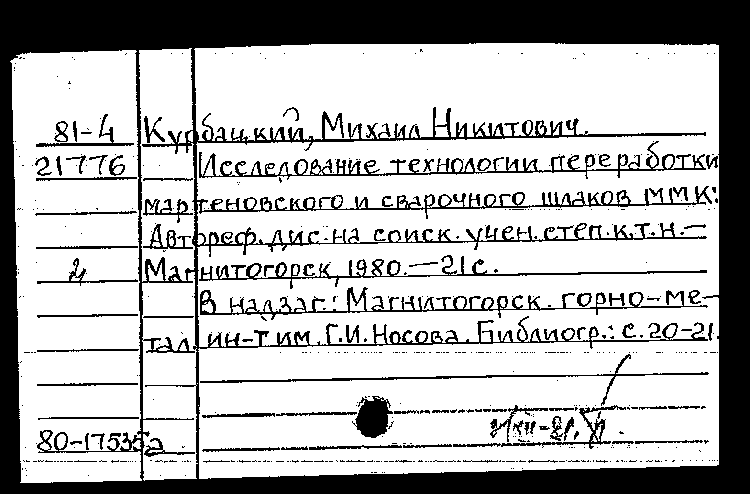 81-4 Курбацкий, Михаил Никитович.
21776 Исследование технологии переработки
мартеновского и сварочного шлаков ММК:
Автореф. дис. на соиск. учен. степ. к.т.н. —
2 Магнитогорск, 1980. — 21 с.
В надзаг.: Магнитогорск. горно-ме-
тал. ин-т им. Г.И. Носова. Библиогр.: с. 20-21.
80-17535а